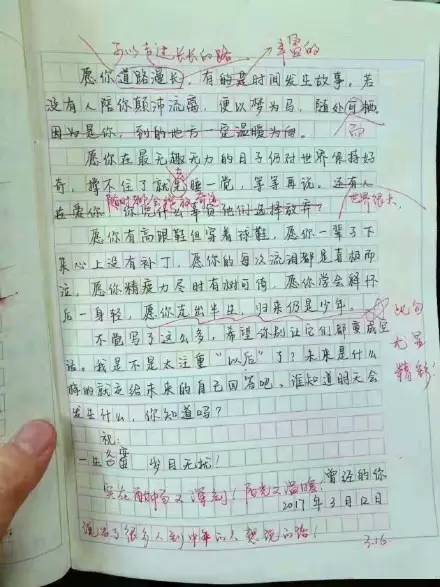 可以走过长长的路 丰富的
愿你道路漫长,有的是时间发生故事。若
没有人陪你颠沛流离,便以梦为马,随处可栖。
因为是你,到的地方一定温暖为向。 而
愿你在最无趣无力的日子仍对世界保持好
奇,撑不住了就先睡一觉,等等再说。还有人
在爱你 你凭什么辜负他们选择放弃? 世界很大
愿你有高跟鞋但穿着球鞋,愿你一辈子下
来心上没有补丁,愿你的每次流泪都是喜极而
泣,愿你精疲力尽时有树可倚,愿你学会释怀
后一身轻,愿你走出半生,归来仍是少年。
不觉写了这么多,希望你别让它们都变成空 此句
话。我是不是太注重“以后”了?未来是什么 尤显
样的就交给未来的自己回答吧。谁知道明天会 精彩!
发生什么,你知道吗?
祝:
一生 岁月无忧!
实在 又深刻!阳光又温暖 曾经的你
2017年3月12日
说出了很多人到中年的人 的话! 3.16